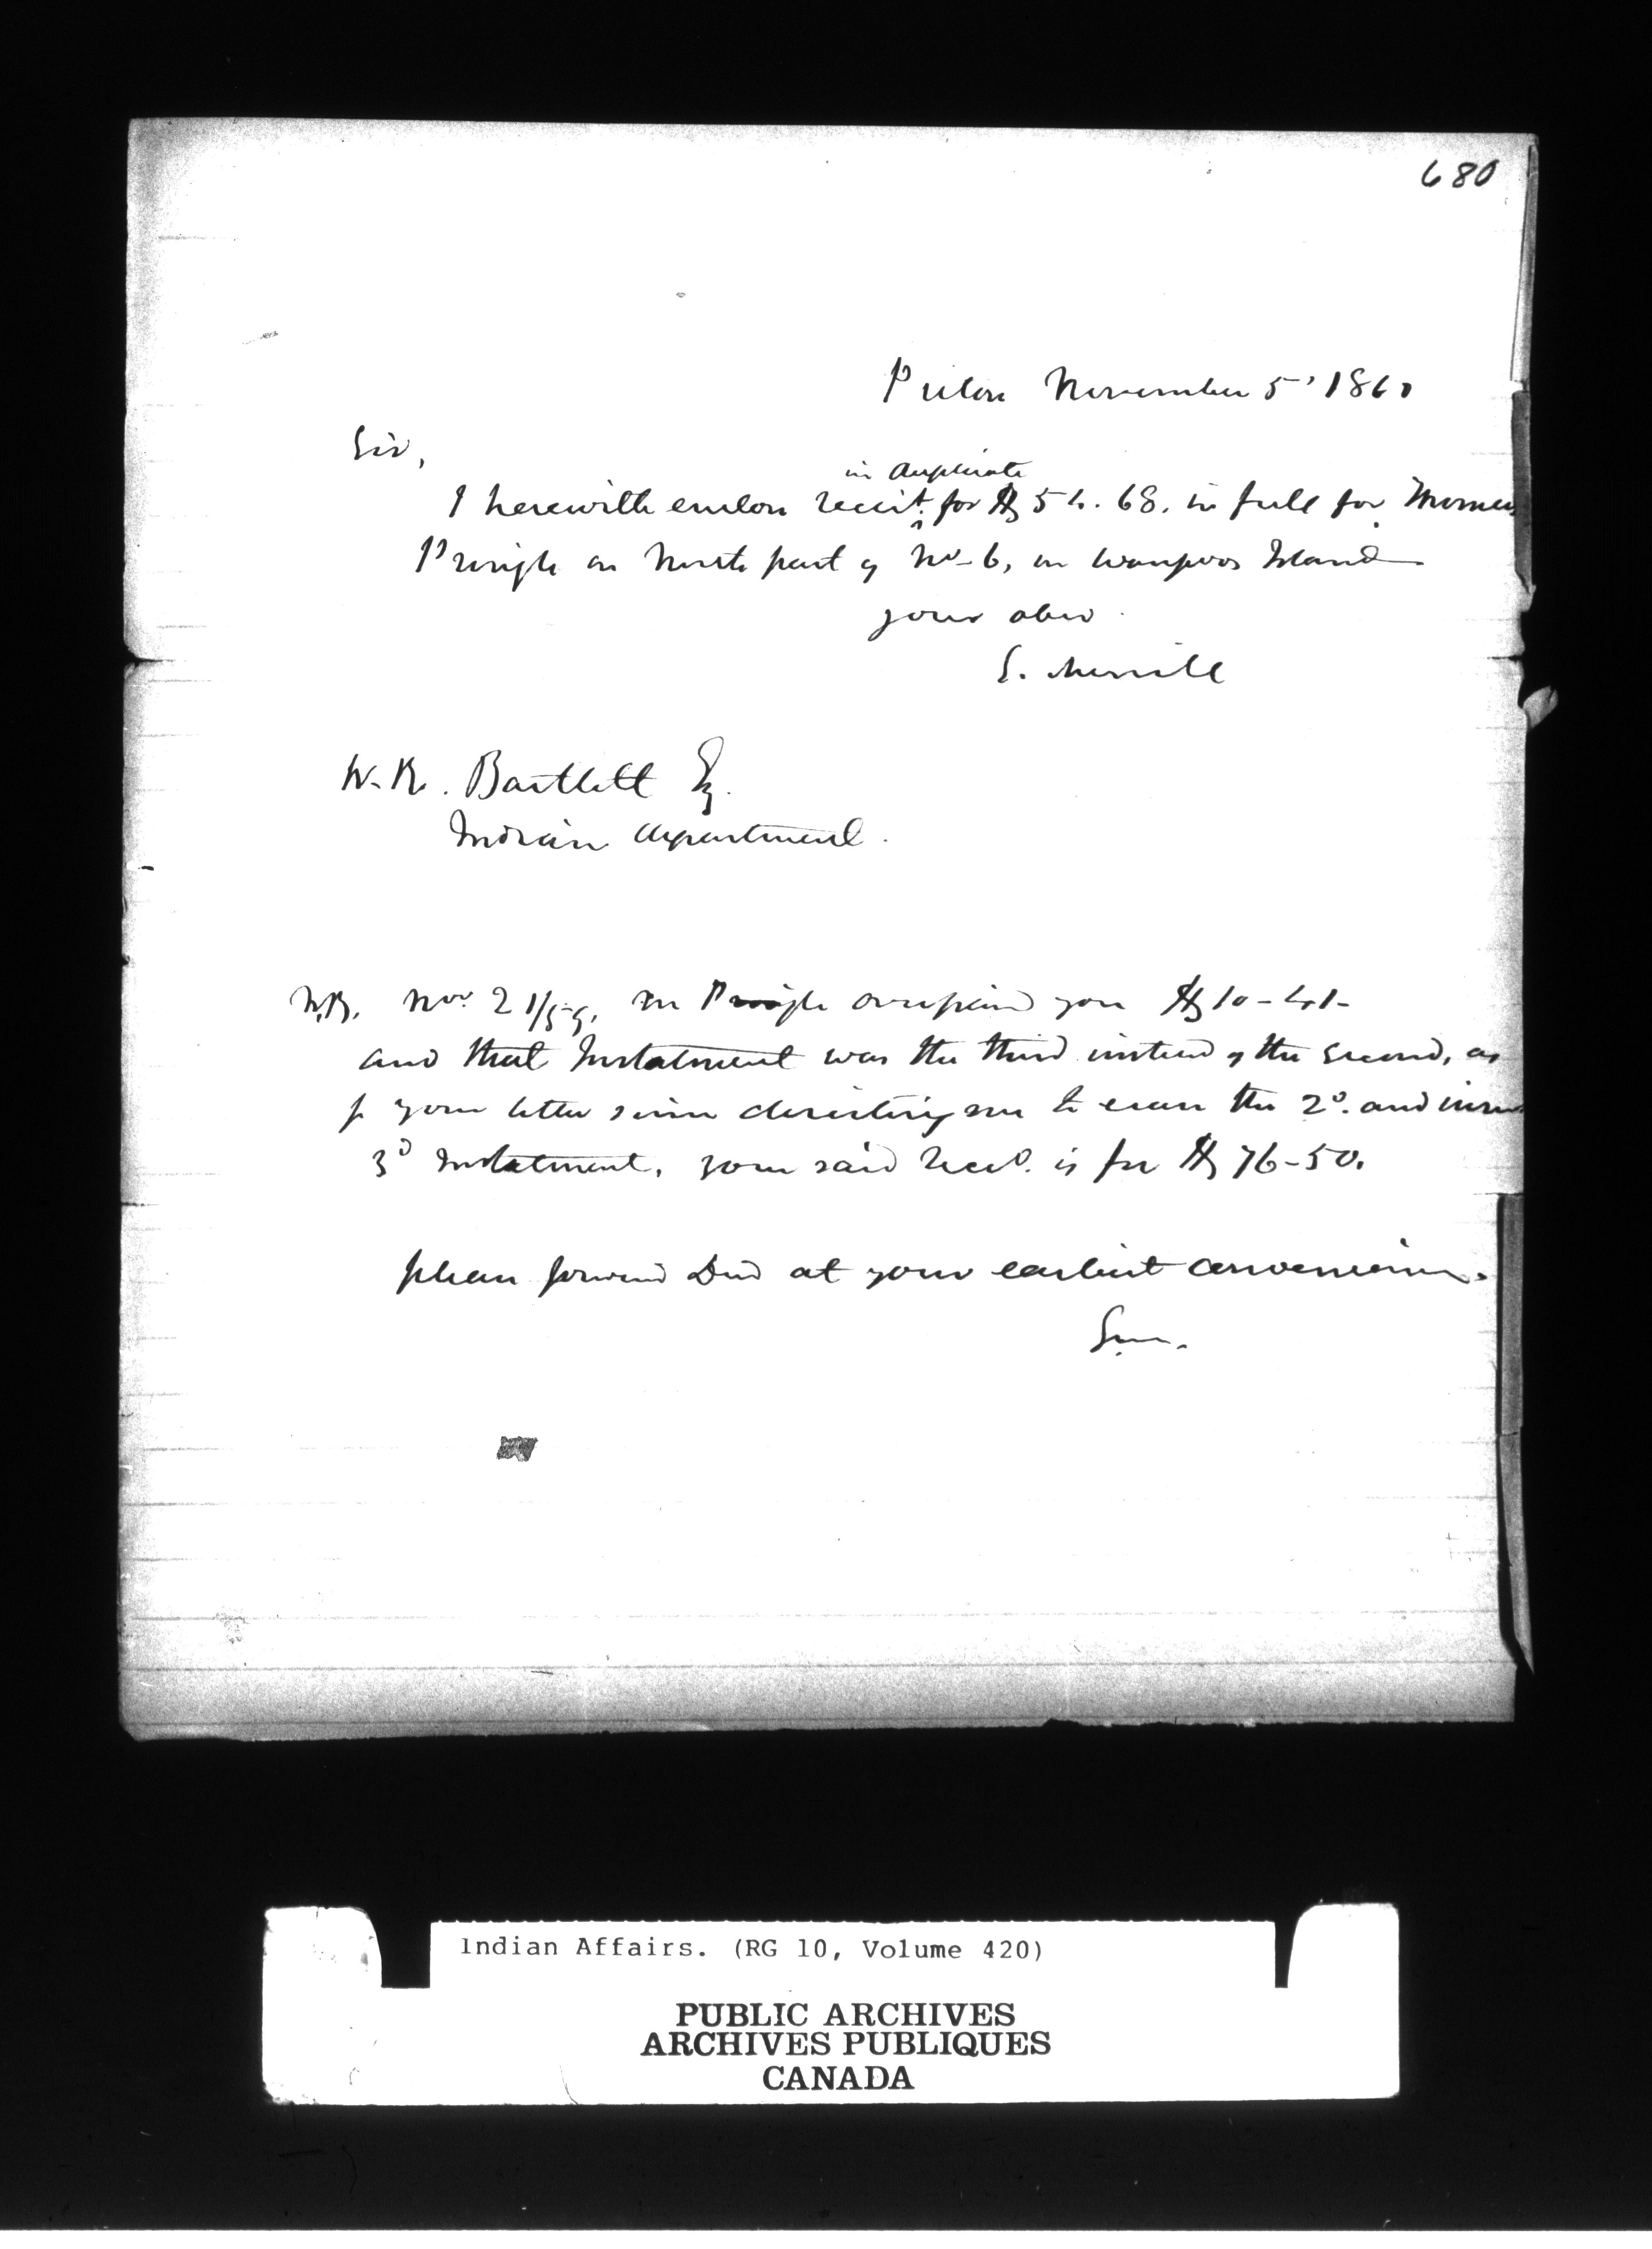 680
Picton November 5' 1860
Sir,
in duplicate
I herewith enclose receit for $54.68. in full for Thomas
Pringle on North part of No 6, in Waupoos Island
your obed
S. Merrill
W. R. Bartlett Esq.
Indian department.
N.B. Nov 21/59, Mr Pringle overpaid you $10-41-
and that Instalment was the third instead of the second, as
p your letter since directing me to erase the 2d. and
3d Instalment, your said Recd. is for $76-50.
please forward Deed at your earliest convenience.
S.M.
Indian Affairs. (RG 10, Volume 420)
PUBLIC ARCHIVES
ARCHIVES PUBLIQUES
CANADA